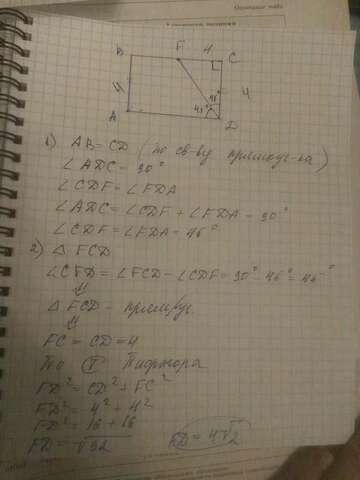 B F 4 C
4
4 45° 45°
A D
1) AB = CD (по св-ву прямоуг-ка)
∠ADC = 90°
∠CDF = ∠FDA
∠ADC = ∠CDF + ∠FDA = 90°
∠CDF = ∠FDA = 45°
2) △ FCD
∠CFD = ∠FCD - ∠CDF = 90° - 45° = 45°
⇓
△ FCD - прямоуг.
⇓
FC = CD = 4
По Т Пифагора
FD² = CD² + FC²
FD² = 4² + 4²
FD² = 16 + 16
FD = √32 FD = 4√2